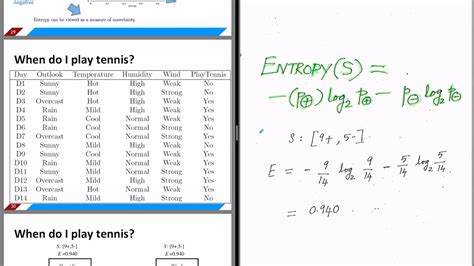 negative
Entropy can be viewed as a measure of uncertainty.
When do I play tennis?
Day Outlook Temperature Humidity Wind PlayTennis
D1 Sunny Hot High Weak No
D2 Sunny Hot High Strong No
D3 Overcast Hot High Weak Yes
D4 Rain Mild High Weak Yes
D5 Rain Cool Normal Weak Yes
D6 Rain Cool Normal Strong No
D7 Overcast Cool Normal Strong Yes
D8 Sunny Mild High Weak No
D9 Sunny Cool Normal Weak Yes
D10 Rain Mild Normal Weak Yes
D11 Sunny Mild Normal Strong Yes
D12 Overcast Mild High Strong Yes
D13 Overcast Hot Normal Weak Yes
D14 Rain Mild High Strong No
When do I play tennis?
S: [9+,5-] S: [9+,5-]
E =0.940 E =0.940
Humidity Wind
ENTROPY(S) =
-(p⊕) log2 p⊕ - p⊖ log2 p⊖
S: [9+, 5-]
E = - 9/14 log2 9/14 - 5/14 log2 5/14
= 0.940